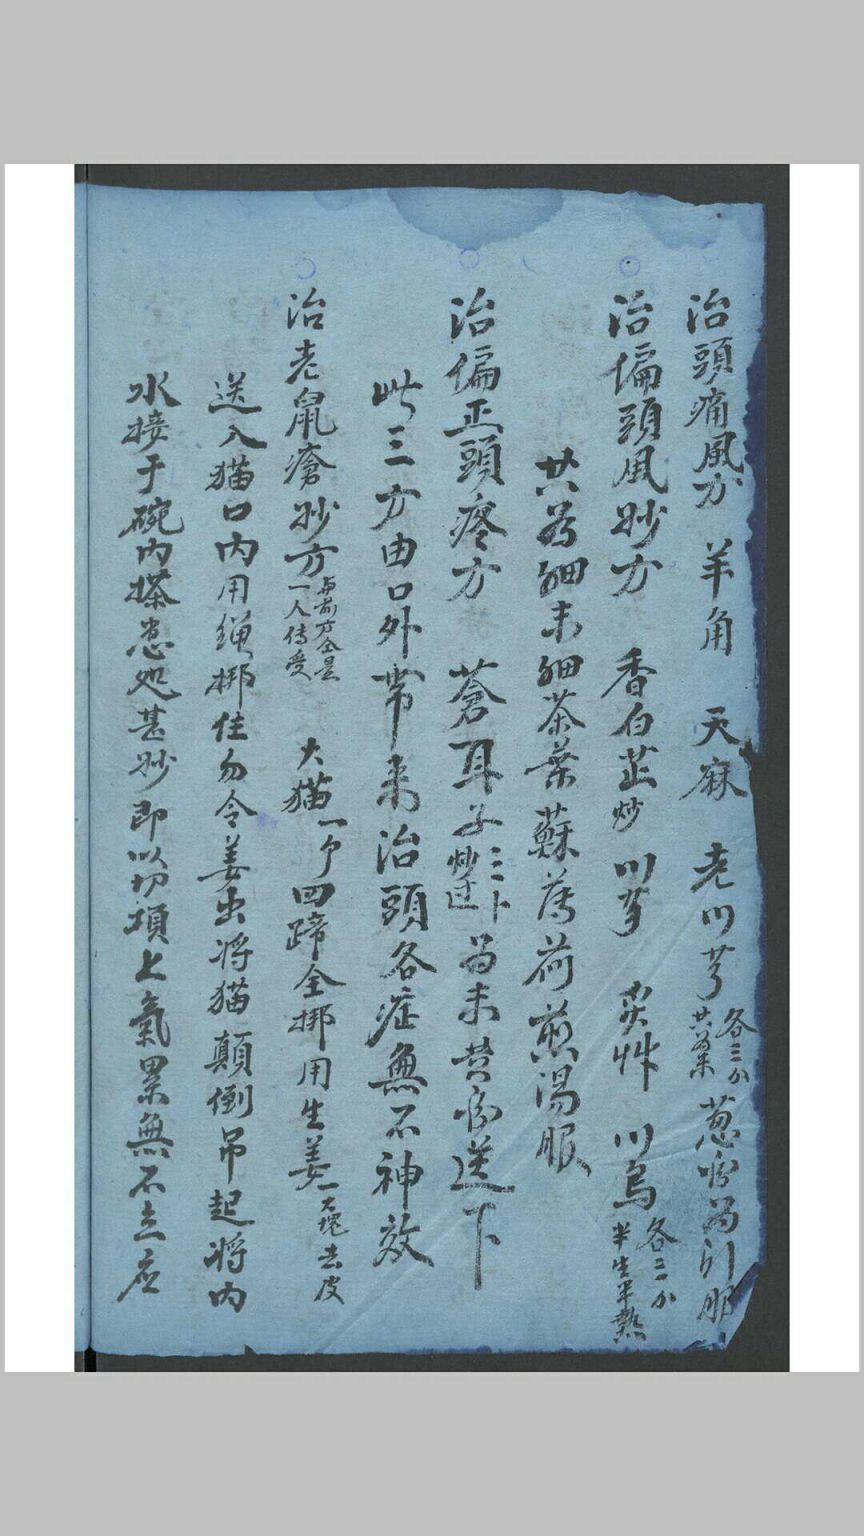 治頭痛風方 羊角 天麻 老川芎 各三分 共為末 葱湯為引服
治偏頭風妙方 香白芷炒 川芎 炙草 川烏 各三分 半生半熟
共為細末細茶葉蘇薄荷煎湯服
治偏正頭疼方 蒼耳子 三卜 炒过 為末 送下
此三方由口外帶来治頭各症無不神效
治老鼠瘡妙方 与前方仝是 一人傳受 大猫一个四蹄全梆用生姜一大塊去皮
送入猫口内用绳梆住勿令姜出将猫顛倒吊起将内
水接于碗内搽患处甚妙即以切項上氣累無不立应